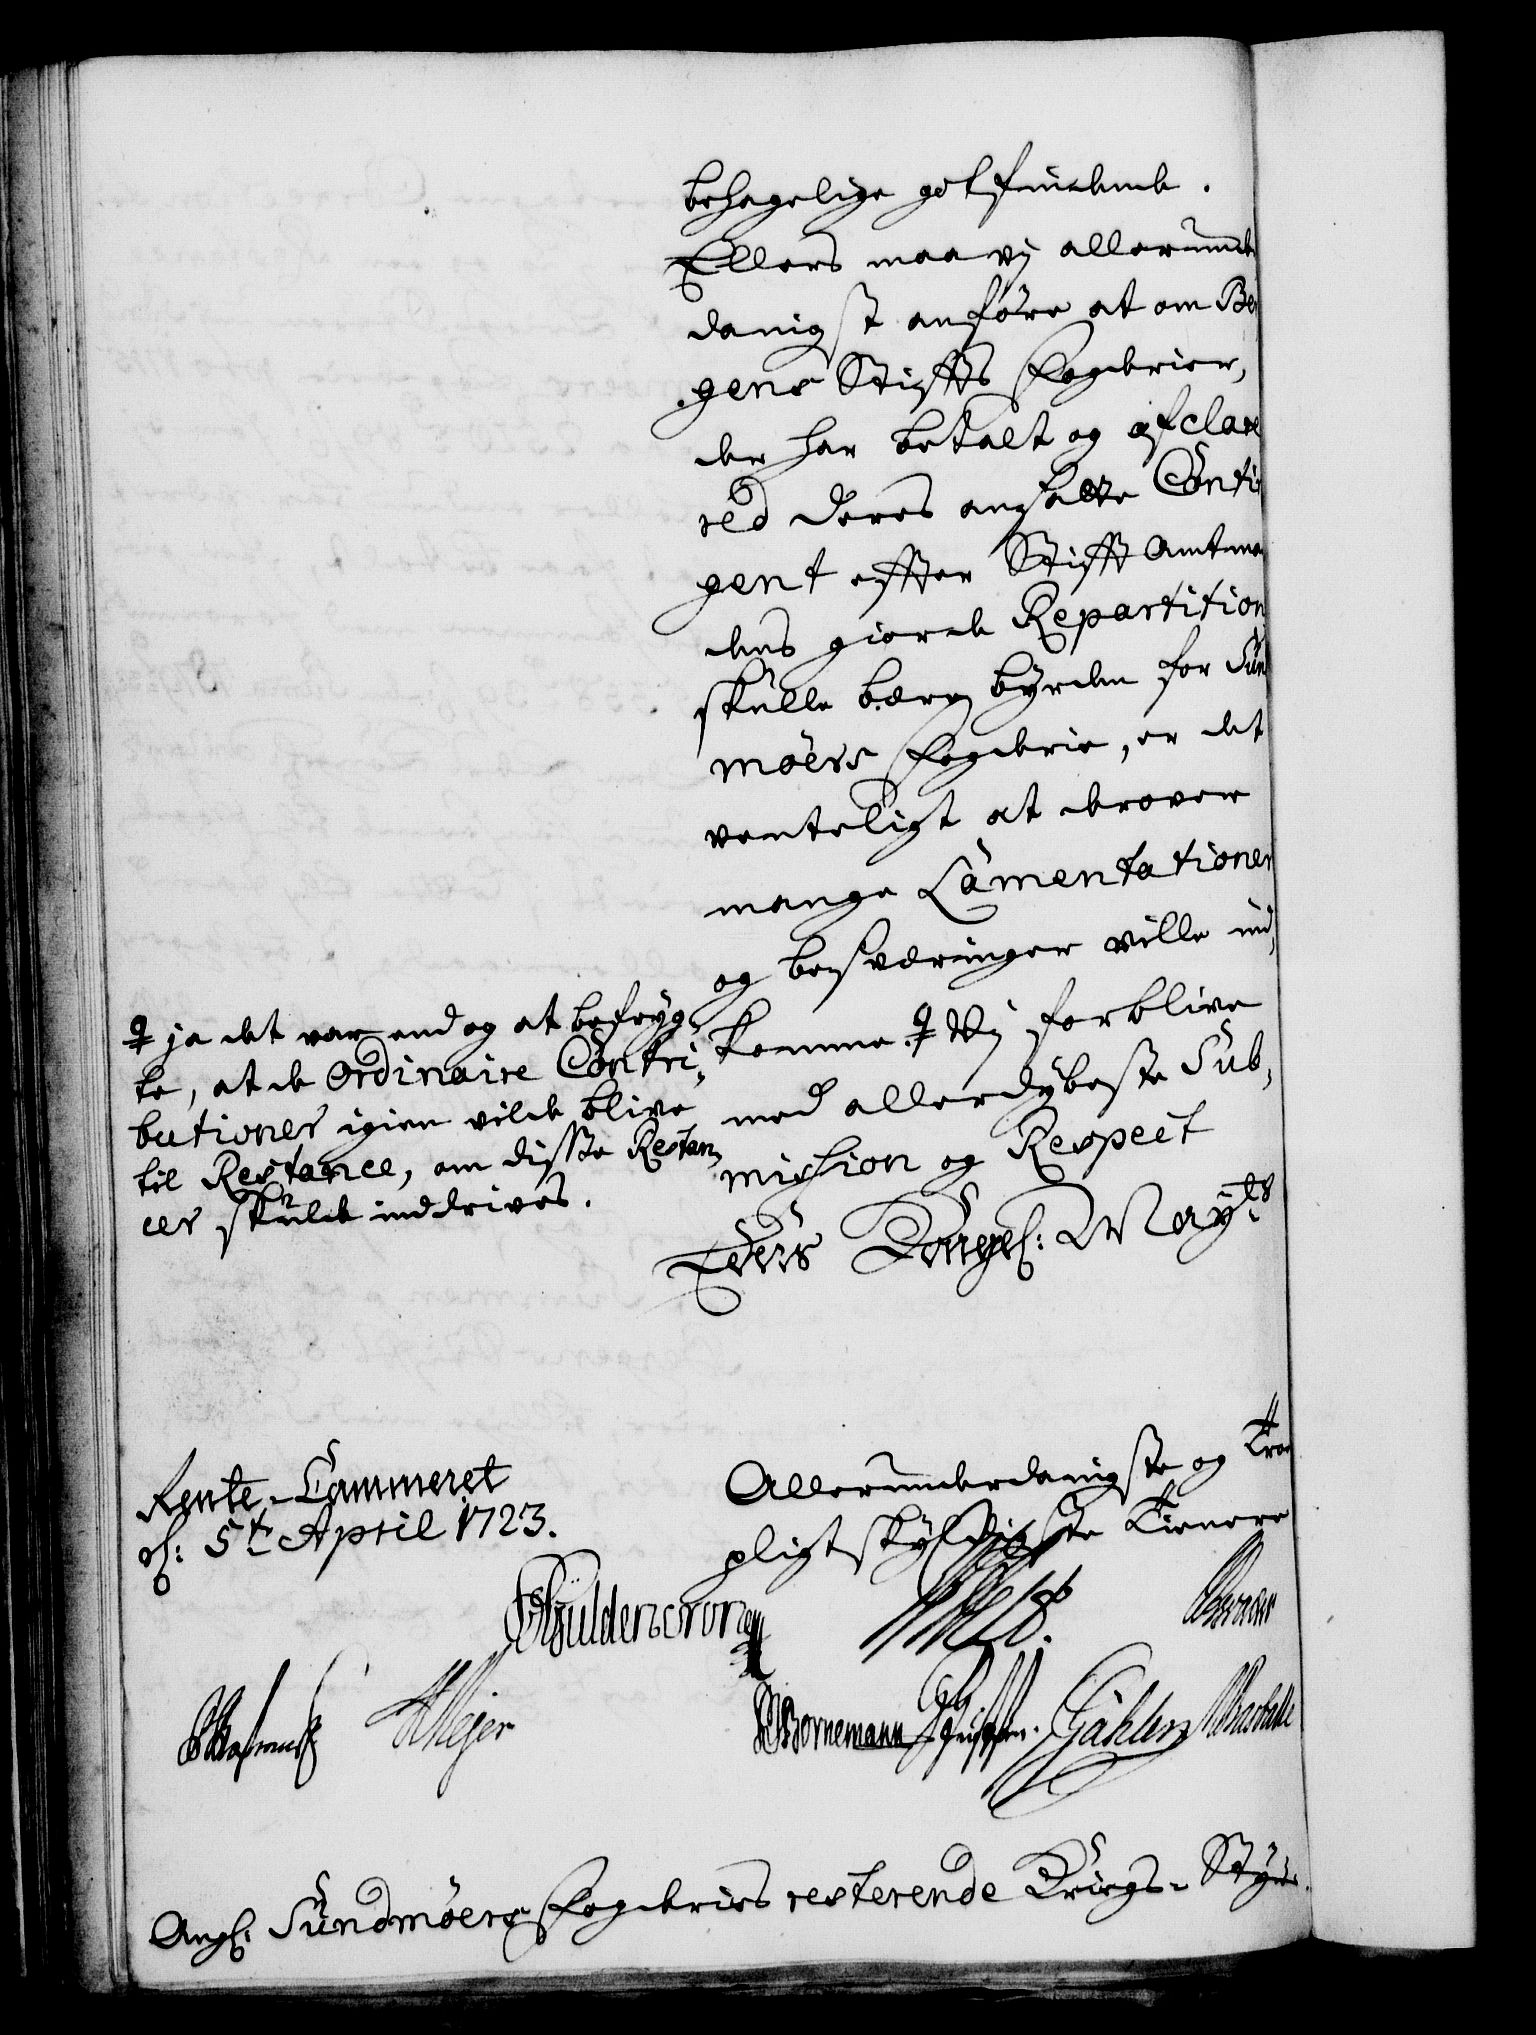 behagelige got findende.
Ellers maa vj allerunde
danigst anføre at om Be
gens Stiffts Fogderier,
der har betalt og afclare
red deres ansatte Conti
gent effter Stifft Amtma
dens giorde Repartition
skulle bære byrden for Sun
møers Fogderie, er det
venteligt at derover
mange Lamentationer
og besværinger ville ind,
komme. ⚥ Vj forblive
med allerdybeste Sub,
mission og Respect
Eders Kongel: May:ts
⚥ ja det var end og at befryg,
te, at de Ordinaire Contri,
butioner igien vilde blive
til Restance, om disse Restan,
cer skulde inddrives.
Rente-Cammeret
d: 5te April 1723.
Allerunderdanigste og Troe
pligtskyldigste Tienere
Güldencrone
HMejer
Bornemann
Gählen
Angl: Sundmøers Fogderies resterende Krigs-Styer.